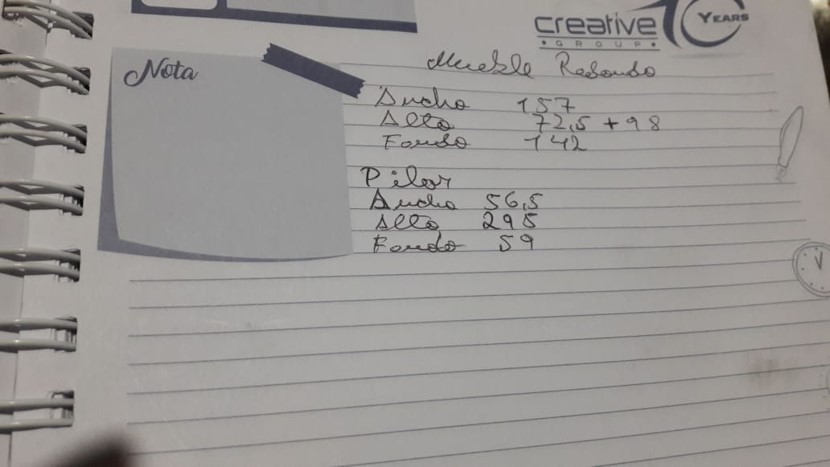 creative 10 YEARS
GROUP
Nota
Mueble Redondo
Ancho 157
Alto 72,5 + 98
Fondo 142
Pilar
Ancho 56,5
Alto 295
Fondo 59